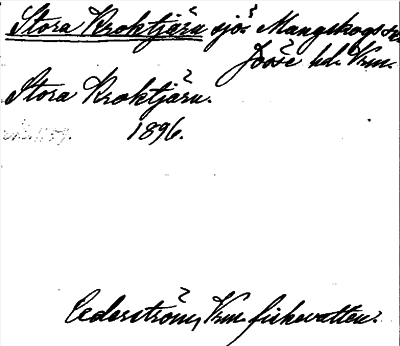 Stora Kroktjärn sjö. Mangskogs sn
Jösse hd. Vrm.
Stora Kroktjärn.
1896.
Cederström, Vrm. fiskevatten.